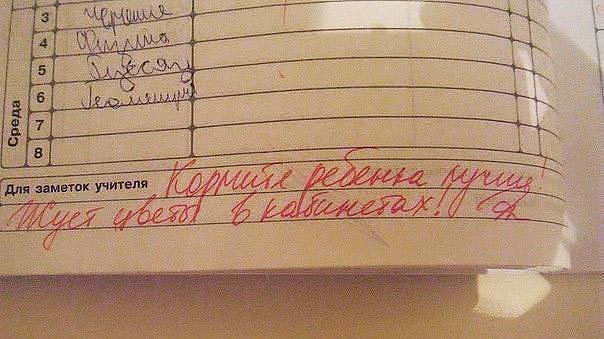 3 черчение
4 Физика
5 Русский
6 Геометрия
7
Среда
8
Для заметок учителя Кормите ребенка лучше!
Жует цветы в кабинетах!